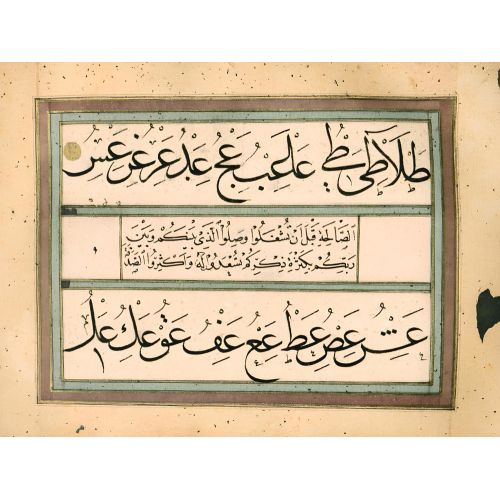 طلا طى طے عا عب عج عد عر عر عس
الصَّالِحَةِ قَبْلَ اَنْ تُشْغَلُوا وَصِلُوا الَّذِى بَيْنَكُمْ وَبَيْنَ
رَبِّكُمْ بِكَثْرَةِ ذِكْرِكُمْ تُسْعَدُوا لَهُ وَاَكْثِرُوا الصَّدَقَةَ
عش عص عط عع عف عق عك عل